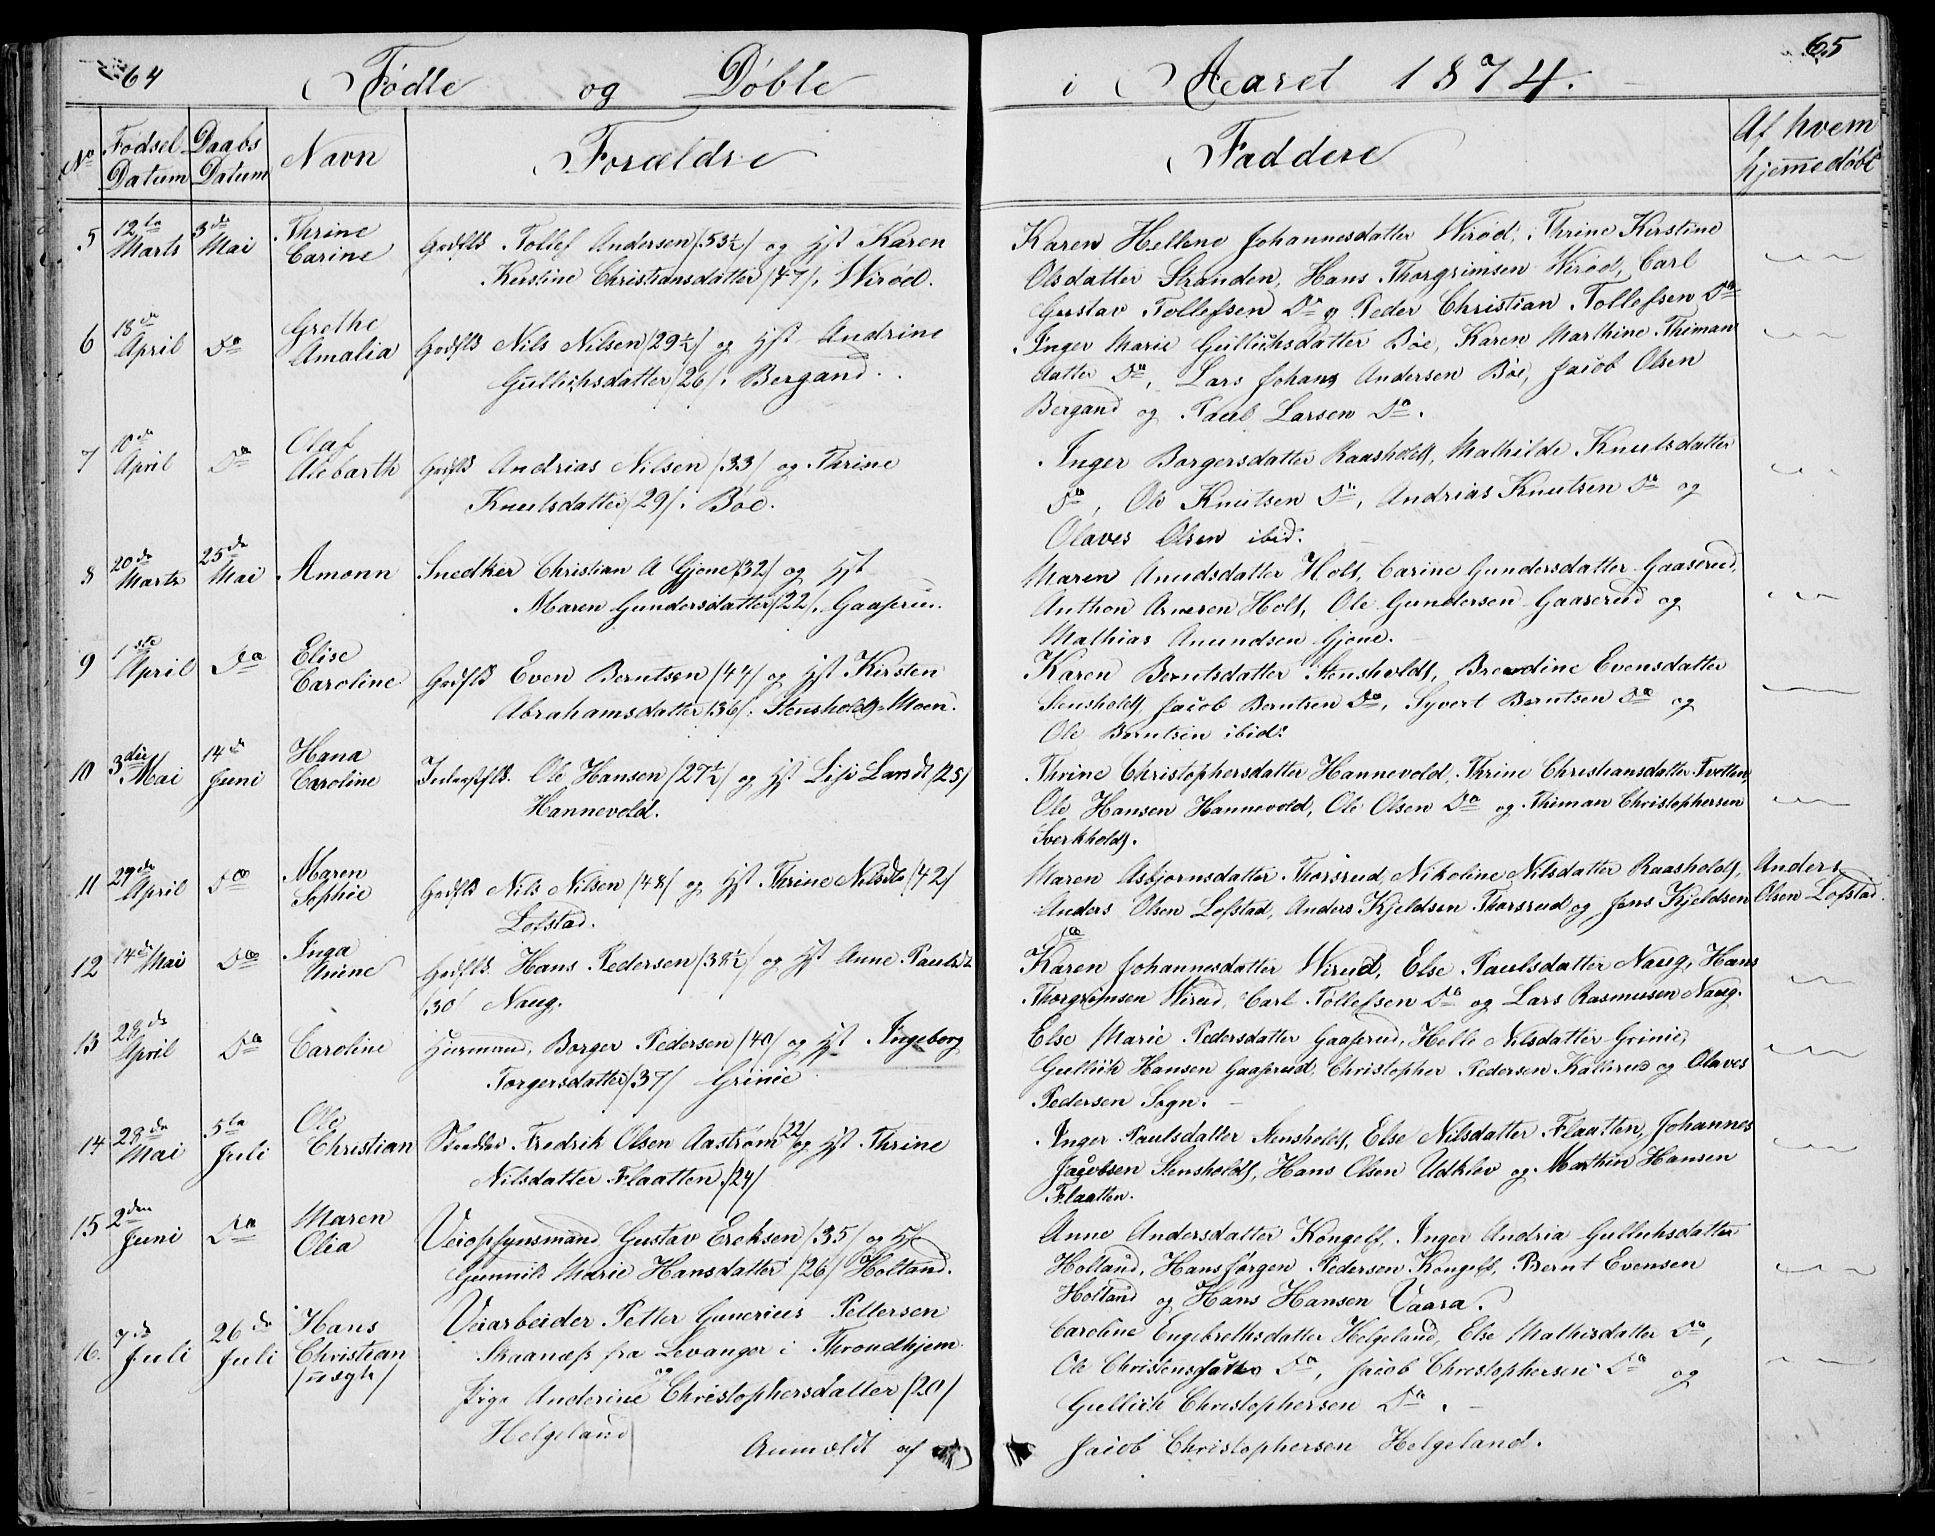 64
65
Födte og Döbte i Aaret 1874.
No Födsel Datum Daabs Datum Navn Forældre Faddere Af hvem hjemmedöbt
5 12te Marts 3de Mai Thrine Carine Gaardfls Tollef Andersen /53½/ og Hst Karen
Kirstine Christiansdatter /47/. Wiröd.
Karen Hellene Johannesdatter Wiröd, Thrine Kirstine
Olsdatter Stranden, Hans Thorgrimsen Wiröd, Carl
Gustav Tollefsen Do og Peder Christian Tollefsen Do
6 18de April Do Grethe Amalia Gaardfls Nils Nilsen /29½/ og Hst Andrine
Gullichsdatter /26/. Bergand.
Inger Marie Gullichsdatter Böe, Karen Marthine Thiman
datter Do, Lars Johans Andersen Böe, Jacob Olsen
Bergand og Paul Larsen Do.
7 10de April Do Olaf Alebarth Gaardfls Andrias Nilsen /33/ og Thrine
Knutsdatter /29/. Böe.
Inger Borgersdatter Raasholdt, Mathilde Knutsdatter
Do, Ole Knutsen Do, Andrias Knutsen Do og
Olaves Olsen ibid.
8 20de Marts 25de Mai Amonn Snedker Christian A Gjone /32/ og Hst
Maren Gundersdatter /22/. Gaaserud.
Maren Anudsdatter Holt, Carine Gundersdatter Gaaserud,
Anthon Arnesen Holt, Ole Gundersen Gaaserud og
Mathias Anundsen Gjone.
9 1ste April Do Elise Caroline Gaardfls Even Berntsen /44/ og Hst Kirsten
Abrahamsdatter /36/. Stensholdt-Moen.
Karen Berntsdatter Stensholdt, Berndine Evensdatter
Stensholdt, Jacob Berntsen Do, Syvert Berntsen Do og
Ole Berntsen ibid.
10 3die Mai 14de Juni Hana Caroline Inderstfls. Ole Hansen /27½/ og Hst Lise Larsdt /25/
Hannevold.
Thrine Christophersdatter Hannevold, Thrine Christiansdatter Tvetten,
Ole Hansen Hannevold, Ole Olsen Do og Thiman Christophersen
Sverkholdt.
11 29de April Do Maren Sophie Gaardfls Nils Nilsen /48/ og Hst Thrine Nilsdt /42/
Lofstad.
Maren Asbjornsdatter Thorsrud, Nikoline Nilsdatter Raasholdt,
Anders Olsen Lofstad, Anders Kjeldsen Thorsrud og Jens Kjeldsen
Do
Anders
Olsen Lofstad.
12 14de Mai Do Inga Mine Gaardfls. Hans Pedersen /38½/ og Hst Anne Paulsdt
/30/ Naug.
Karen Johannesdatter Wirud, Else Paulsdatter Naug, Hans
Thorgrimsen Wirud, Carl Tollefsen Do og Lars Rasmusen Naug.
13 28de April Do Caroline Huusmand. Borger Pedersen /40/ og Hst Ingeborg
Torgersdatter /37/ Grinie
Else Marie Pedersdatter Gaaserud, Helle Nilsdatter Grinie,
Gullich Hansen Gaaserud, Christopher Pedersen Kallerud og Olaves
Pedersen Sogn.
14 28de Mai 5te Juli Ole Christian Fredrik Olsen Aaström /22/ og Hst Thrine
Nilsdatter Flaatten /24/
Inger Paulsdatter Stensholdt, Else Nilsdatter Flaatten, Johannes
Jacobsen Stensholdt, Hans Olsen Udklev og Marthin Hansen
Flaatten.
15 2den Juni Do Maren Olia Veiopsynsmand Gustav Ereksen /35/ og Hst
Gunnild Marie Hansdatter /26/ Holtand.
Anne Andersdatter Kongelf, Inger Andria Gullichsdatter
Holtand, Hans Jörgen Pedersen Kongelf, Bernt Evensen
Holtand og Hans Hansen Vaara.
16. 7de Juli 26de Juli Hans Christian /uægte/ Veiarbeider Petter Gunerius Pettersen
Skaanæss fra Levanger i Throndhjem
og
Pige Anderine Christophersdatter /20/
Helgeland
Anmeldt af
Caroline Engebrethsdatter Helgeland, Else Mathisdatter Do,
Ole Christensen Do, Jacob Christophersen Do og
Gullich Christophersen Do.
Jacob Christophersen Helgeland.